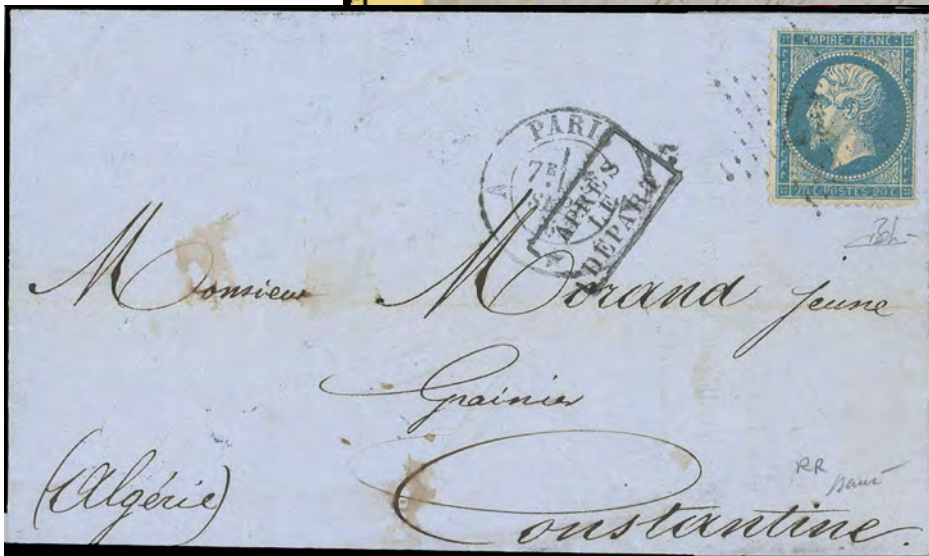 EMPIRE · FRANC
20 C POSTES 20 C
PARIS
A
7E
APRÈS
LE
DÉPART
Monsieur Morand jeune
Grainier
(Algérie)
Constantine.
RR